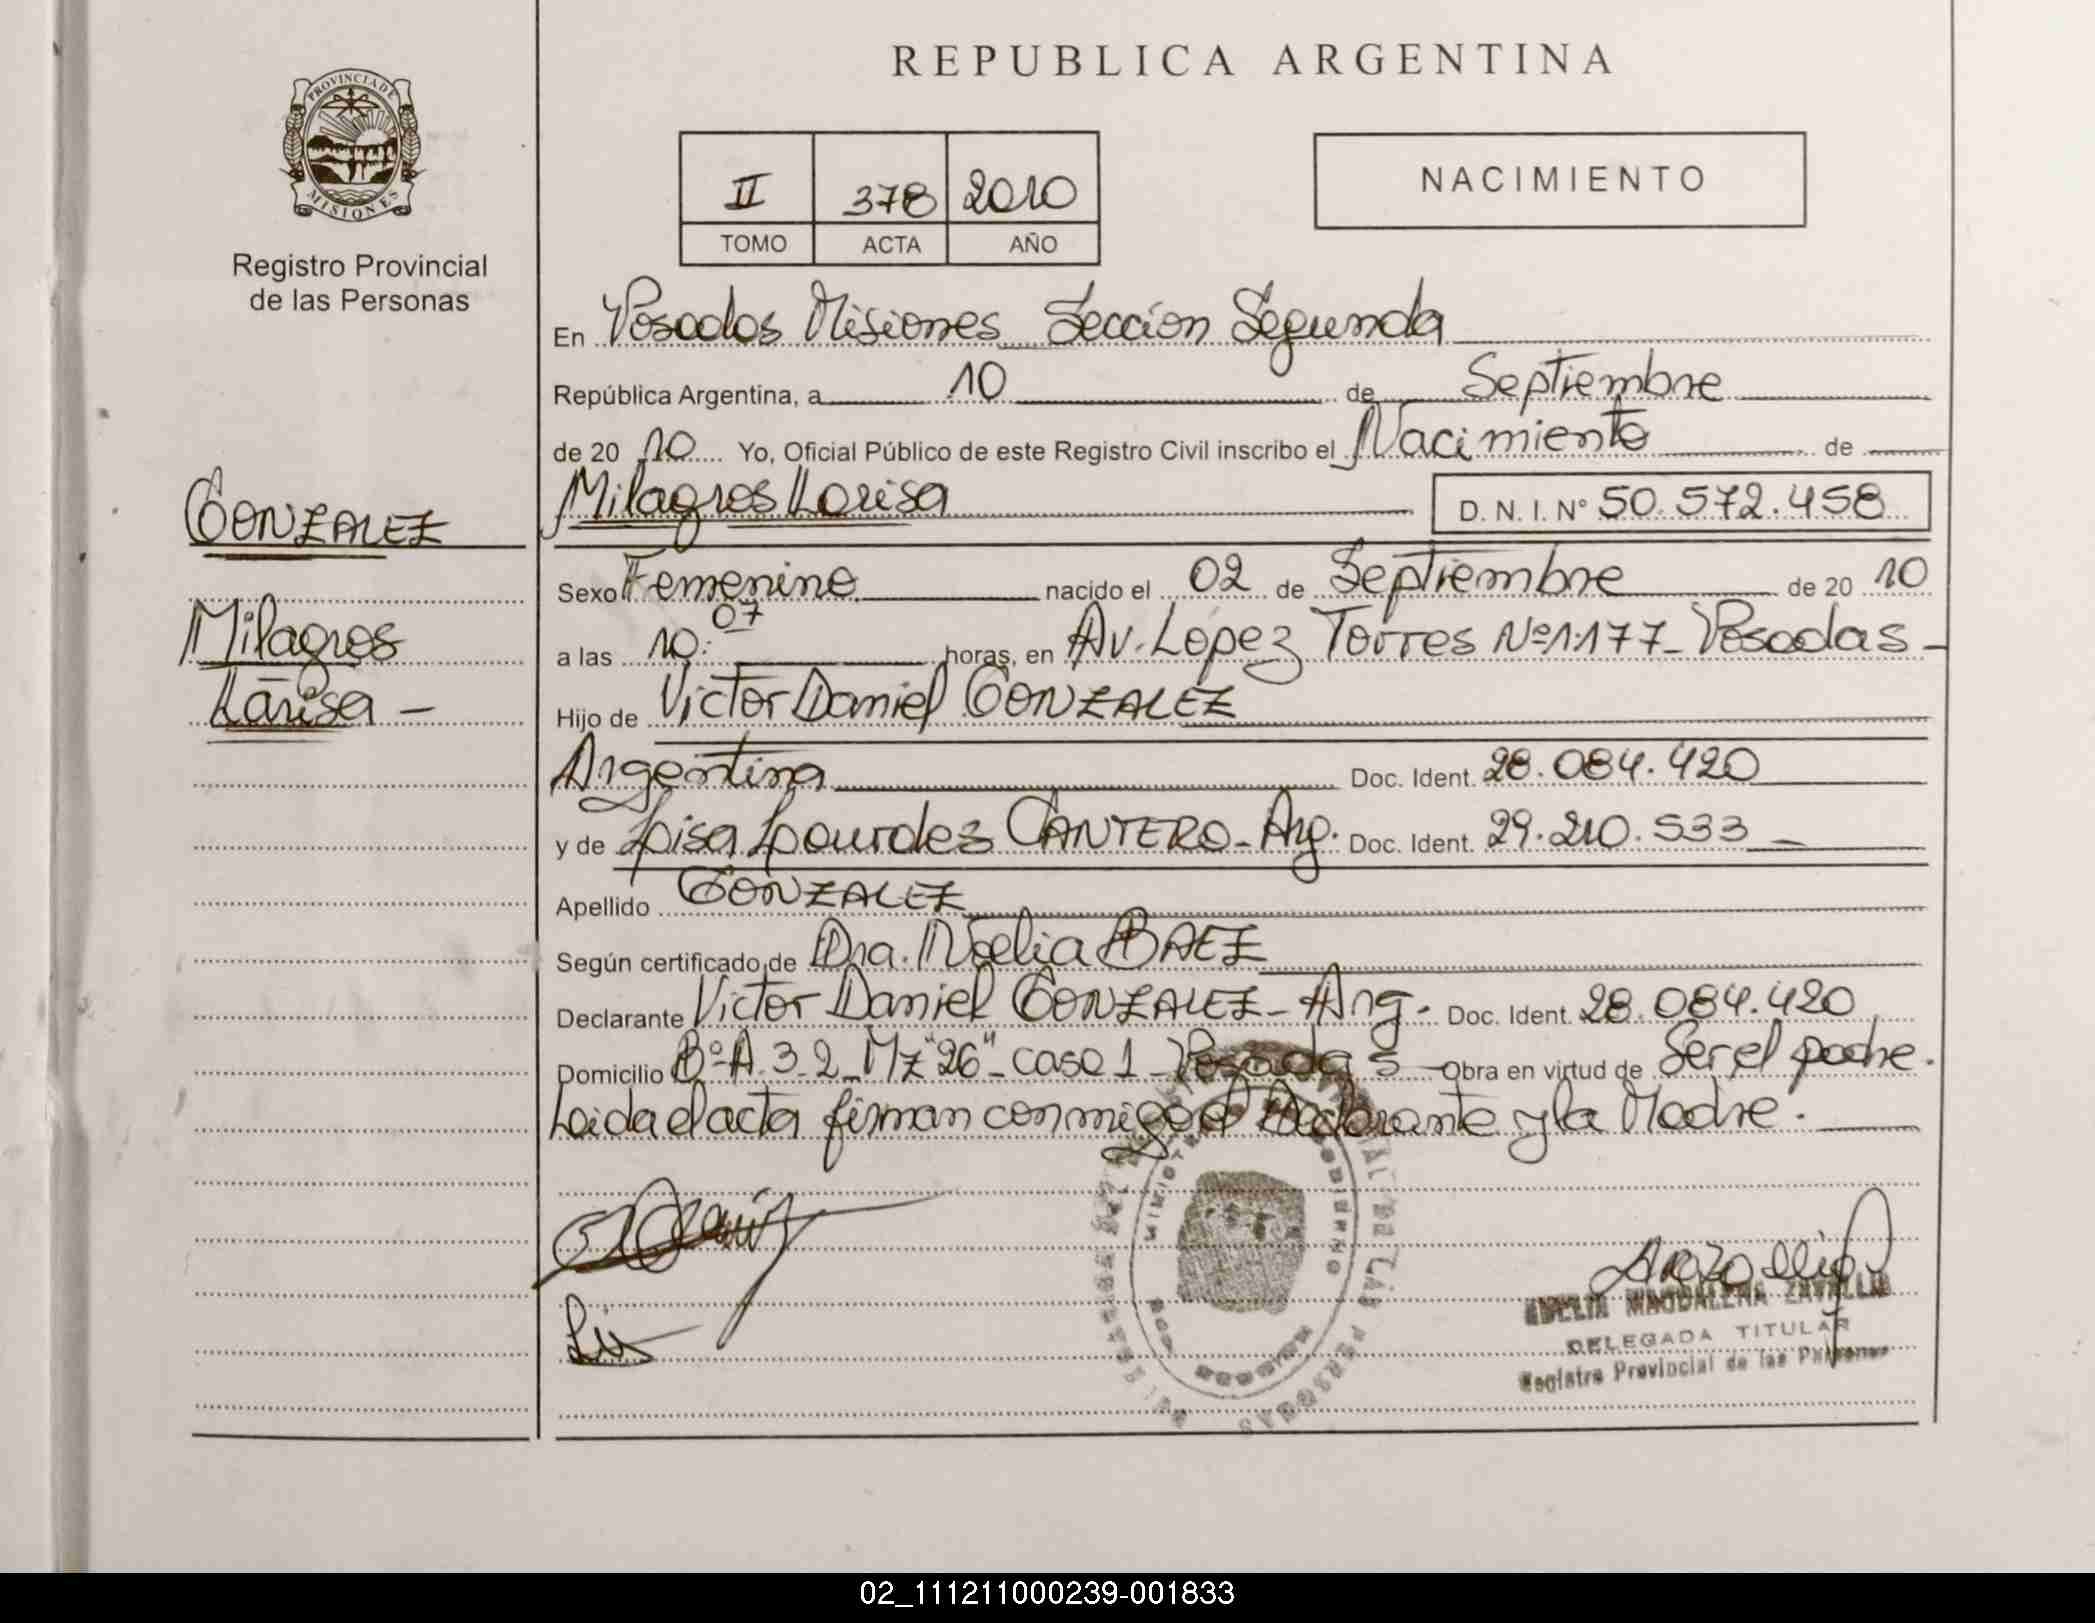 REPUBLICA ARGENTINA
PROVINCIA DE
MISIONES
Registro Provincial
de las Personas
II 378 2010
TOMO ACTA AÑO
NACIMIENTO
En Posadas Misiones Sección Segunda
República Argentina, a 10 de Septiembre
de 20 10 Yo, Oficial Público de este Registro Civil inscribo el Nacimiento de
GONZALEZ
Milagros
Larisa -
Milagros Larisa D. N. I. Nº 50.572.458
Sexo Femenino nacido el 02 de Septiembre de 20 10
a las 10:07 horas, en Av. López Torres Nº 1.177 - Posadas -
Hijo de Victor Daniel GONZALEZ
Argentina Doc. Ident. 28.084.420
y de Lisa Lourdes CANTERO - Arg. Doc. Ident. 29.210.533
Apellido GONZALEZ
Según certificado de Dra. Noelia BAEZ
Declarante Victor Daniel GONZALEZ - Arg. Doc. Ident. 28.084.420
Domicilio Bº A.3.2 - Mz "26" - casa 1 - Posadas Obra en virtud de Ser el padre.
Leida el acta firman conmigo el Declarante y la Madre.
MINISTERIO GOBIERNO
POSADAS MISIONES
DE LAS PERSONAS
MAGDALENA ZAVALLA
DELEGADA TITULAR
Registro Provincial de las Personas
02_111211000239-001833